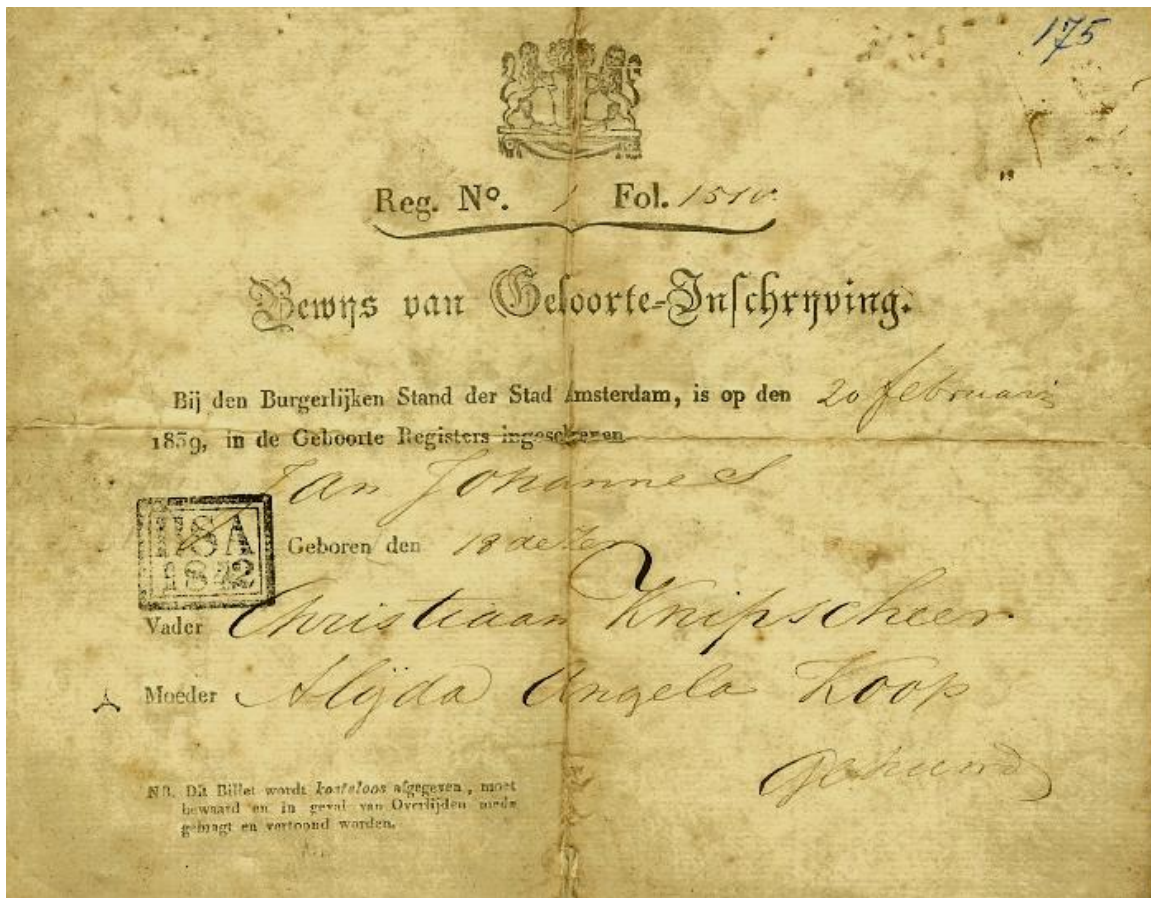 175
Reg. Nº. 1 Fol. 151v.
Bewijs van Geboorte-Inschrijving.
Bij den Burgerlijken Stand der Stad Amsterdam, is op den 20 februarij
1839, in de Geboorte Registers ingeschreven
Jan Johannes
1842
Geboren den 18 dezer
Vader Christiaan Knipscheer
Moeder Alijda Angela Koop
NB. Dit Billet wordt kosteloos afgegeven, moet
bewaard en in geval van Overlijden mede
gebragt en vertoond worden.